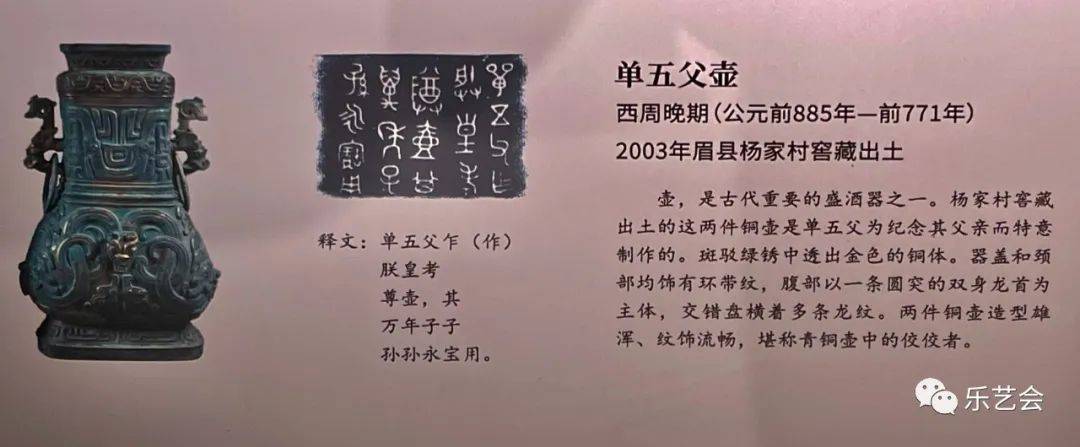 单五父壶
西周晚期（公元前885年—前771年）
2003年眉县杨家村窖藏出土
壶，是古代重要的盛酒器之一。杨家村窖藏
出土的这两件铜壶是单五父为纪念其父亲而特意
制作的。斑驳绿锈中透出金色的铜体。器盖和颈
部均饰有环带纹，腹部以一条圆突的双身龙首为
主体，交错盘横着多条龙纹。两件铜壶造型雄
浑、纹饰流畅，堪称青铜壶中的佼佼者。
释文：单五父乍（作）
朕皇考
尊壶，其
万年子子
孙孙永宝用。
乐艺会